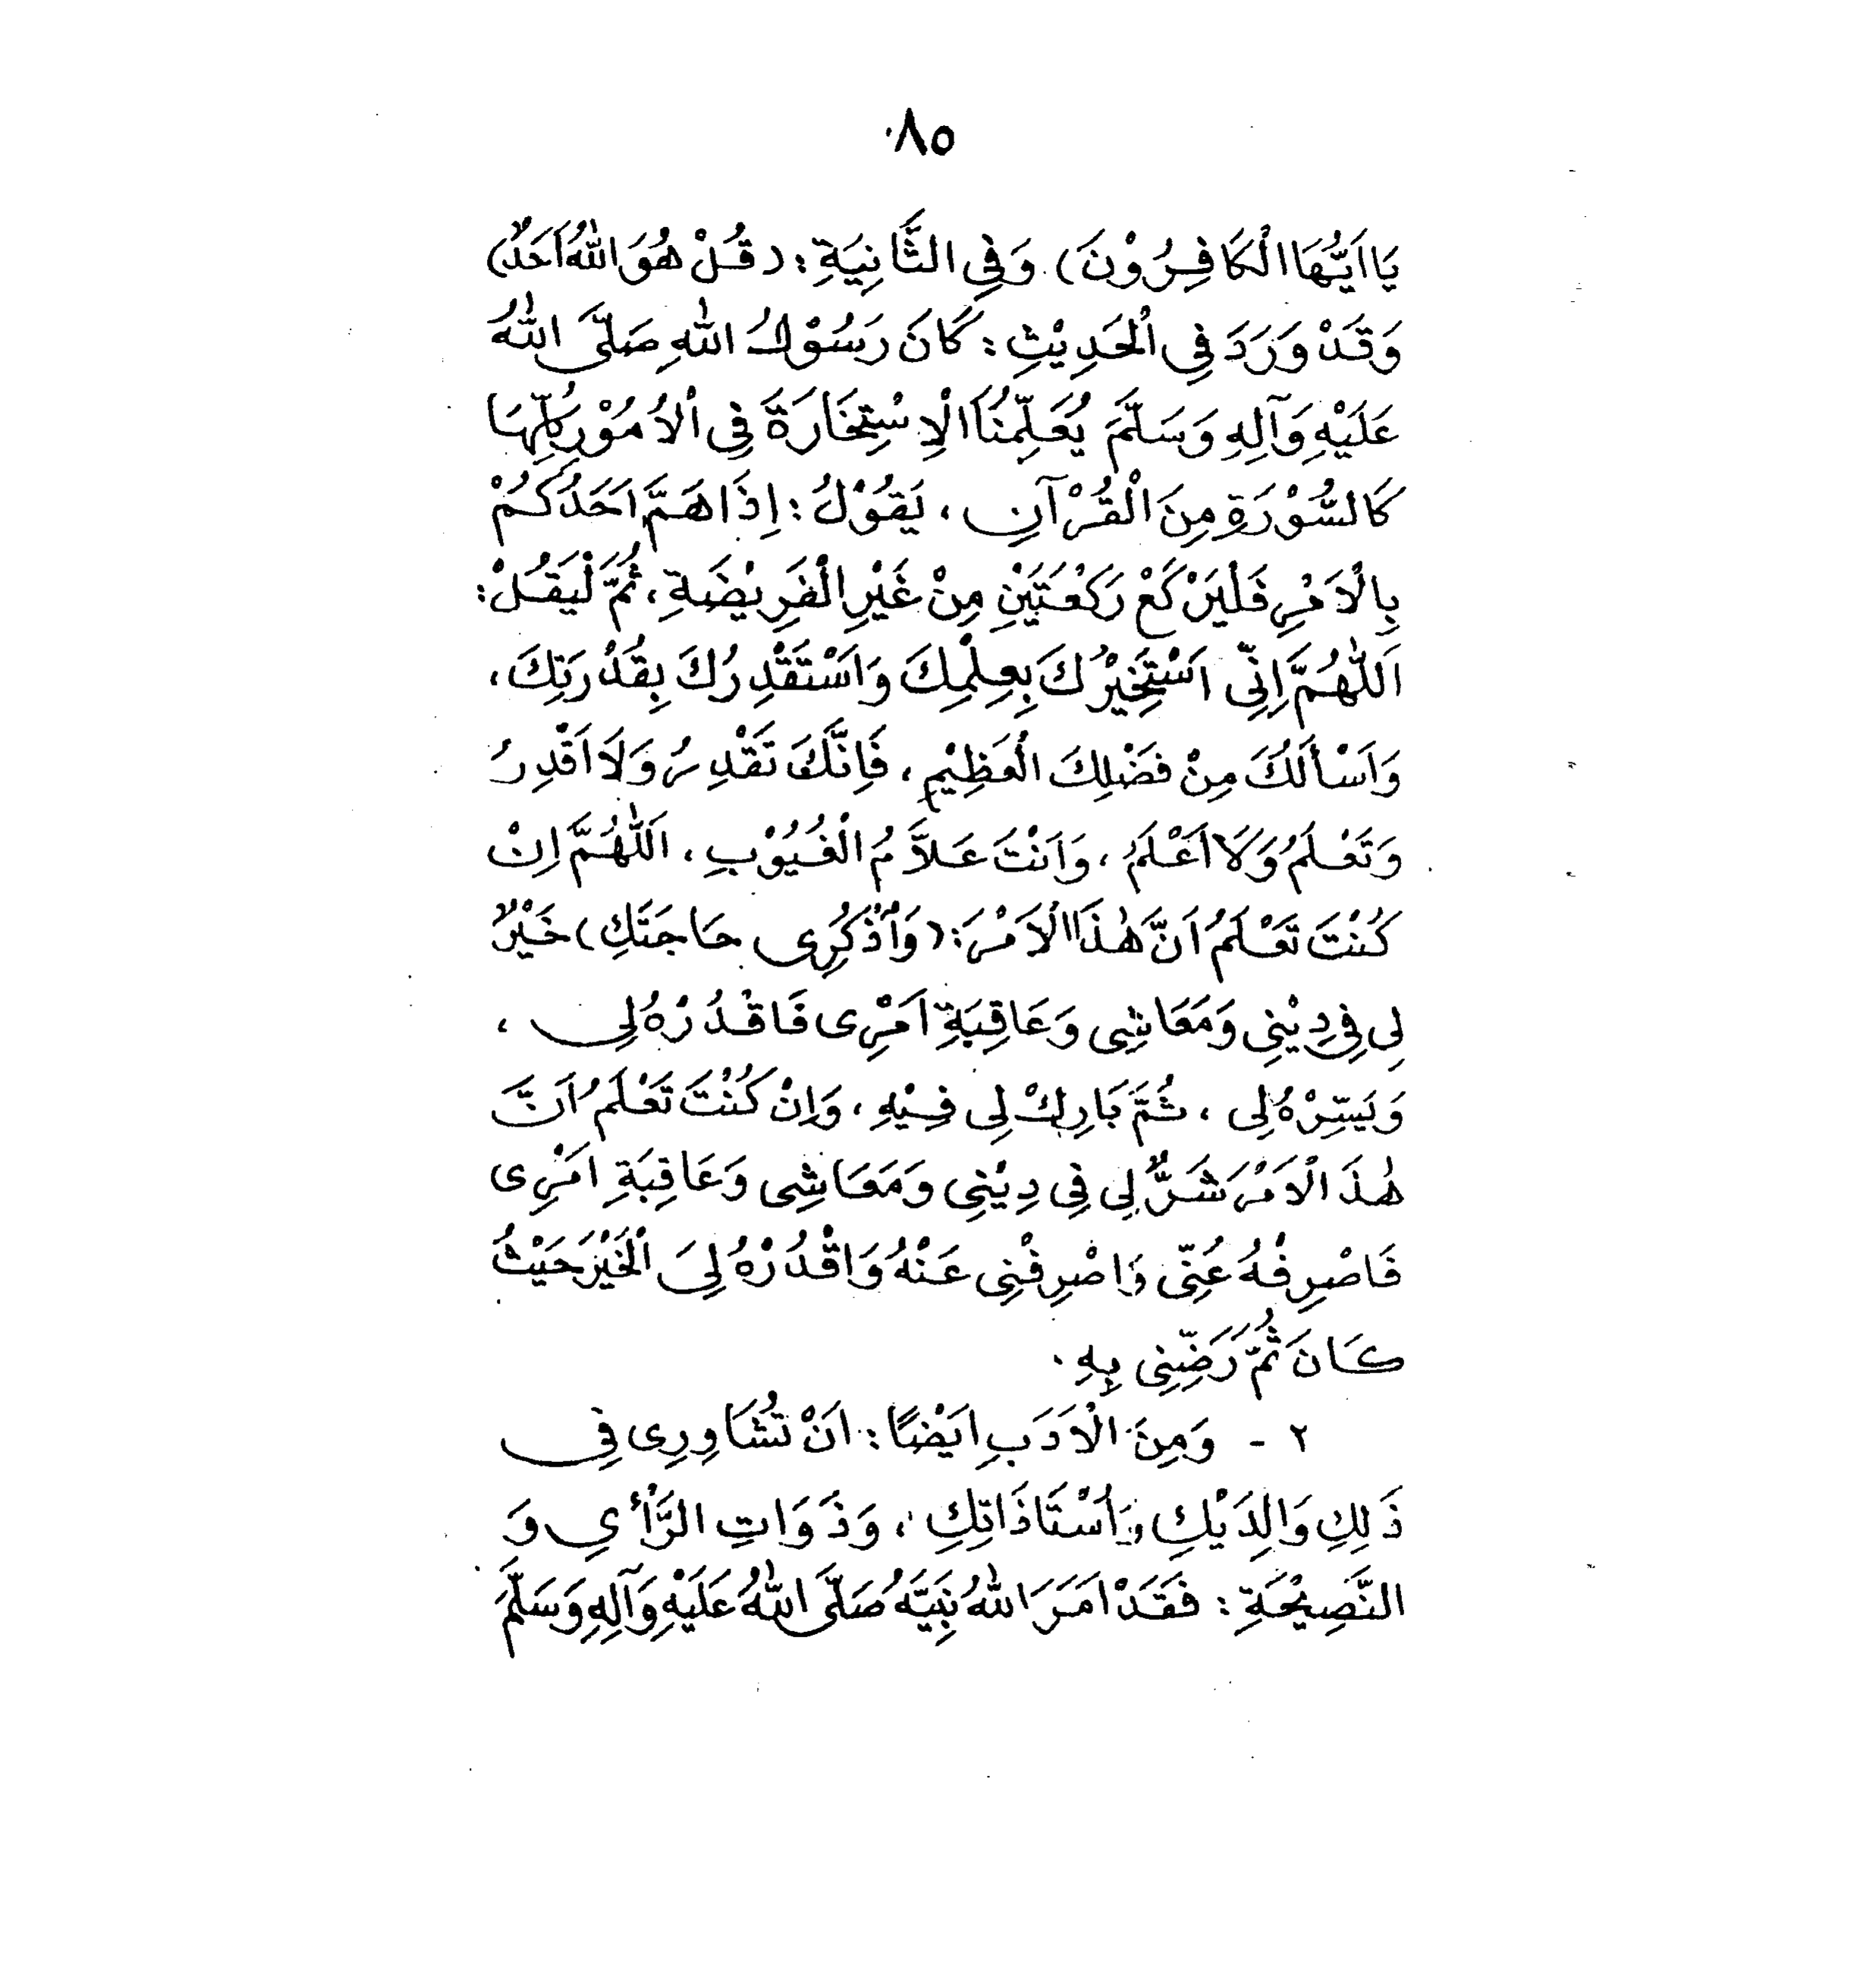 ٨٥
يَا اَيُّهَا الْكَافِرُوْنَ) وَفِي الثَّانِيَةِ: (قُلْ هُوَ اللهُ اَحَدٌ)
وَقَدْ وَرَدَ فِي الْحَدِيْثِ: كَانَ رَسُوْلُ اللهِ صَلَّى اللهُ
عَلَيْهِ وَآلِهِ وَسَلَّمَ يُعَلِّمُنَا الْاِسْتِخَارَةَ فِي الْاُمُوْرِ كُلِّهَا
كَالسُّوْرَةِ مِنَ الْقُرْآنِ، يَقُوْلُ: اِذَا هَمَّ اَحَدُكُمْ
بِالْاَمْرِ فَلْيَرْكَعْ رَكْعَتَيْنِ مِنْ غَيْرِ الْفَرِيْضَةِ، ثُمَّ لْيَقُلْ:
اَللّٰهُمَّ اِنِّي اَسْتَخِيْرُكَ بِعِلْمِكَ وَاَسْتَقْدِرُكَ بِقُدْرَتِكَ،
وَاَسْأَلُكَ مِنْ فَضْلِكَ الْعَظِيْمِ، فَاِنَّكَ تَقْدِرُ وَلَا اَقْدِرُ
وَتَعْلَمُ وَلَا اَعْلَمُ، وَاَنْتَ عَلَّامُ الْغُيُوْبِ، اَللّٰهُمَّ اِنْ
كُنْتَ تَعْلَمُ اَنَّ هٰذَا الْاَمْرَ: (وَاذْكُرِى حَاجَتَكِ) خَيْرٌ
لِي فِي دِيْنِي وَمَعَاشِى وَعَاقِبَةِ اَمْرِى فَاقْدُرْهُ لِي،
وَيَسِّرْهُ لِى، ثُمَّ بَارِكْ لِى فِيْهِ، وَاِنْ كُنْتَ تَعْلَمُ اَنَّ
هٰذَ الْاَمْرَ شَرٌّ لِي فِي دِيْنِي وَمَعَاشِى وَعَاقِبَةِ اَمْرِى
فَاصْرِفْهُ عَنِّى وَاصْرِفْنِى عَنْهُ وَاقْدُرْهُ لِيَ الْخَيْرَ حَيْثُ
كَانَ ثُمَّ رَضِّنِى بِهِ.
٢ - وَمِنَ الْاَدَبِ اَيْضًا: اَنْ تُشَاوِرِى فِي
ذَلِكِ وَالِدَيْكِ وَاُسْتَاذَاتِكِ، وَذَوَاتِ الرَّأْيِ وَ
النَّصِيْحَةِ: فَقَدْ اَمَرَ اللهُ نَبِيَّهُ صَلَّى اللهُ عَلَيْهِ وَآلِهِ وَسَلَّمَ